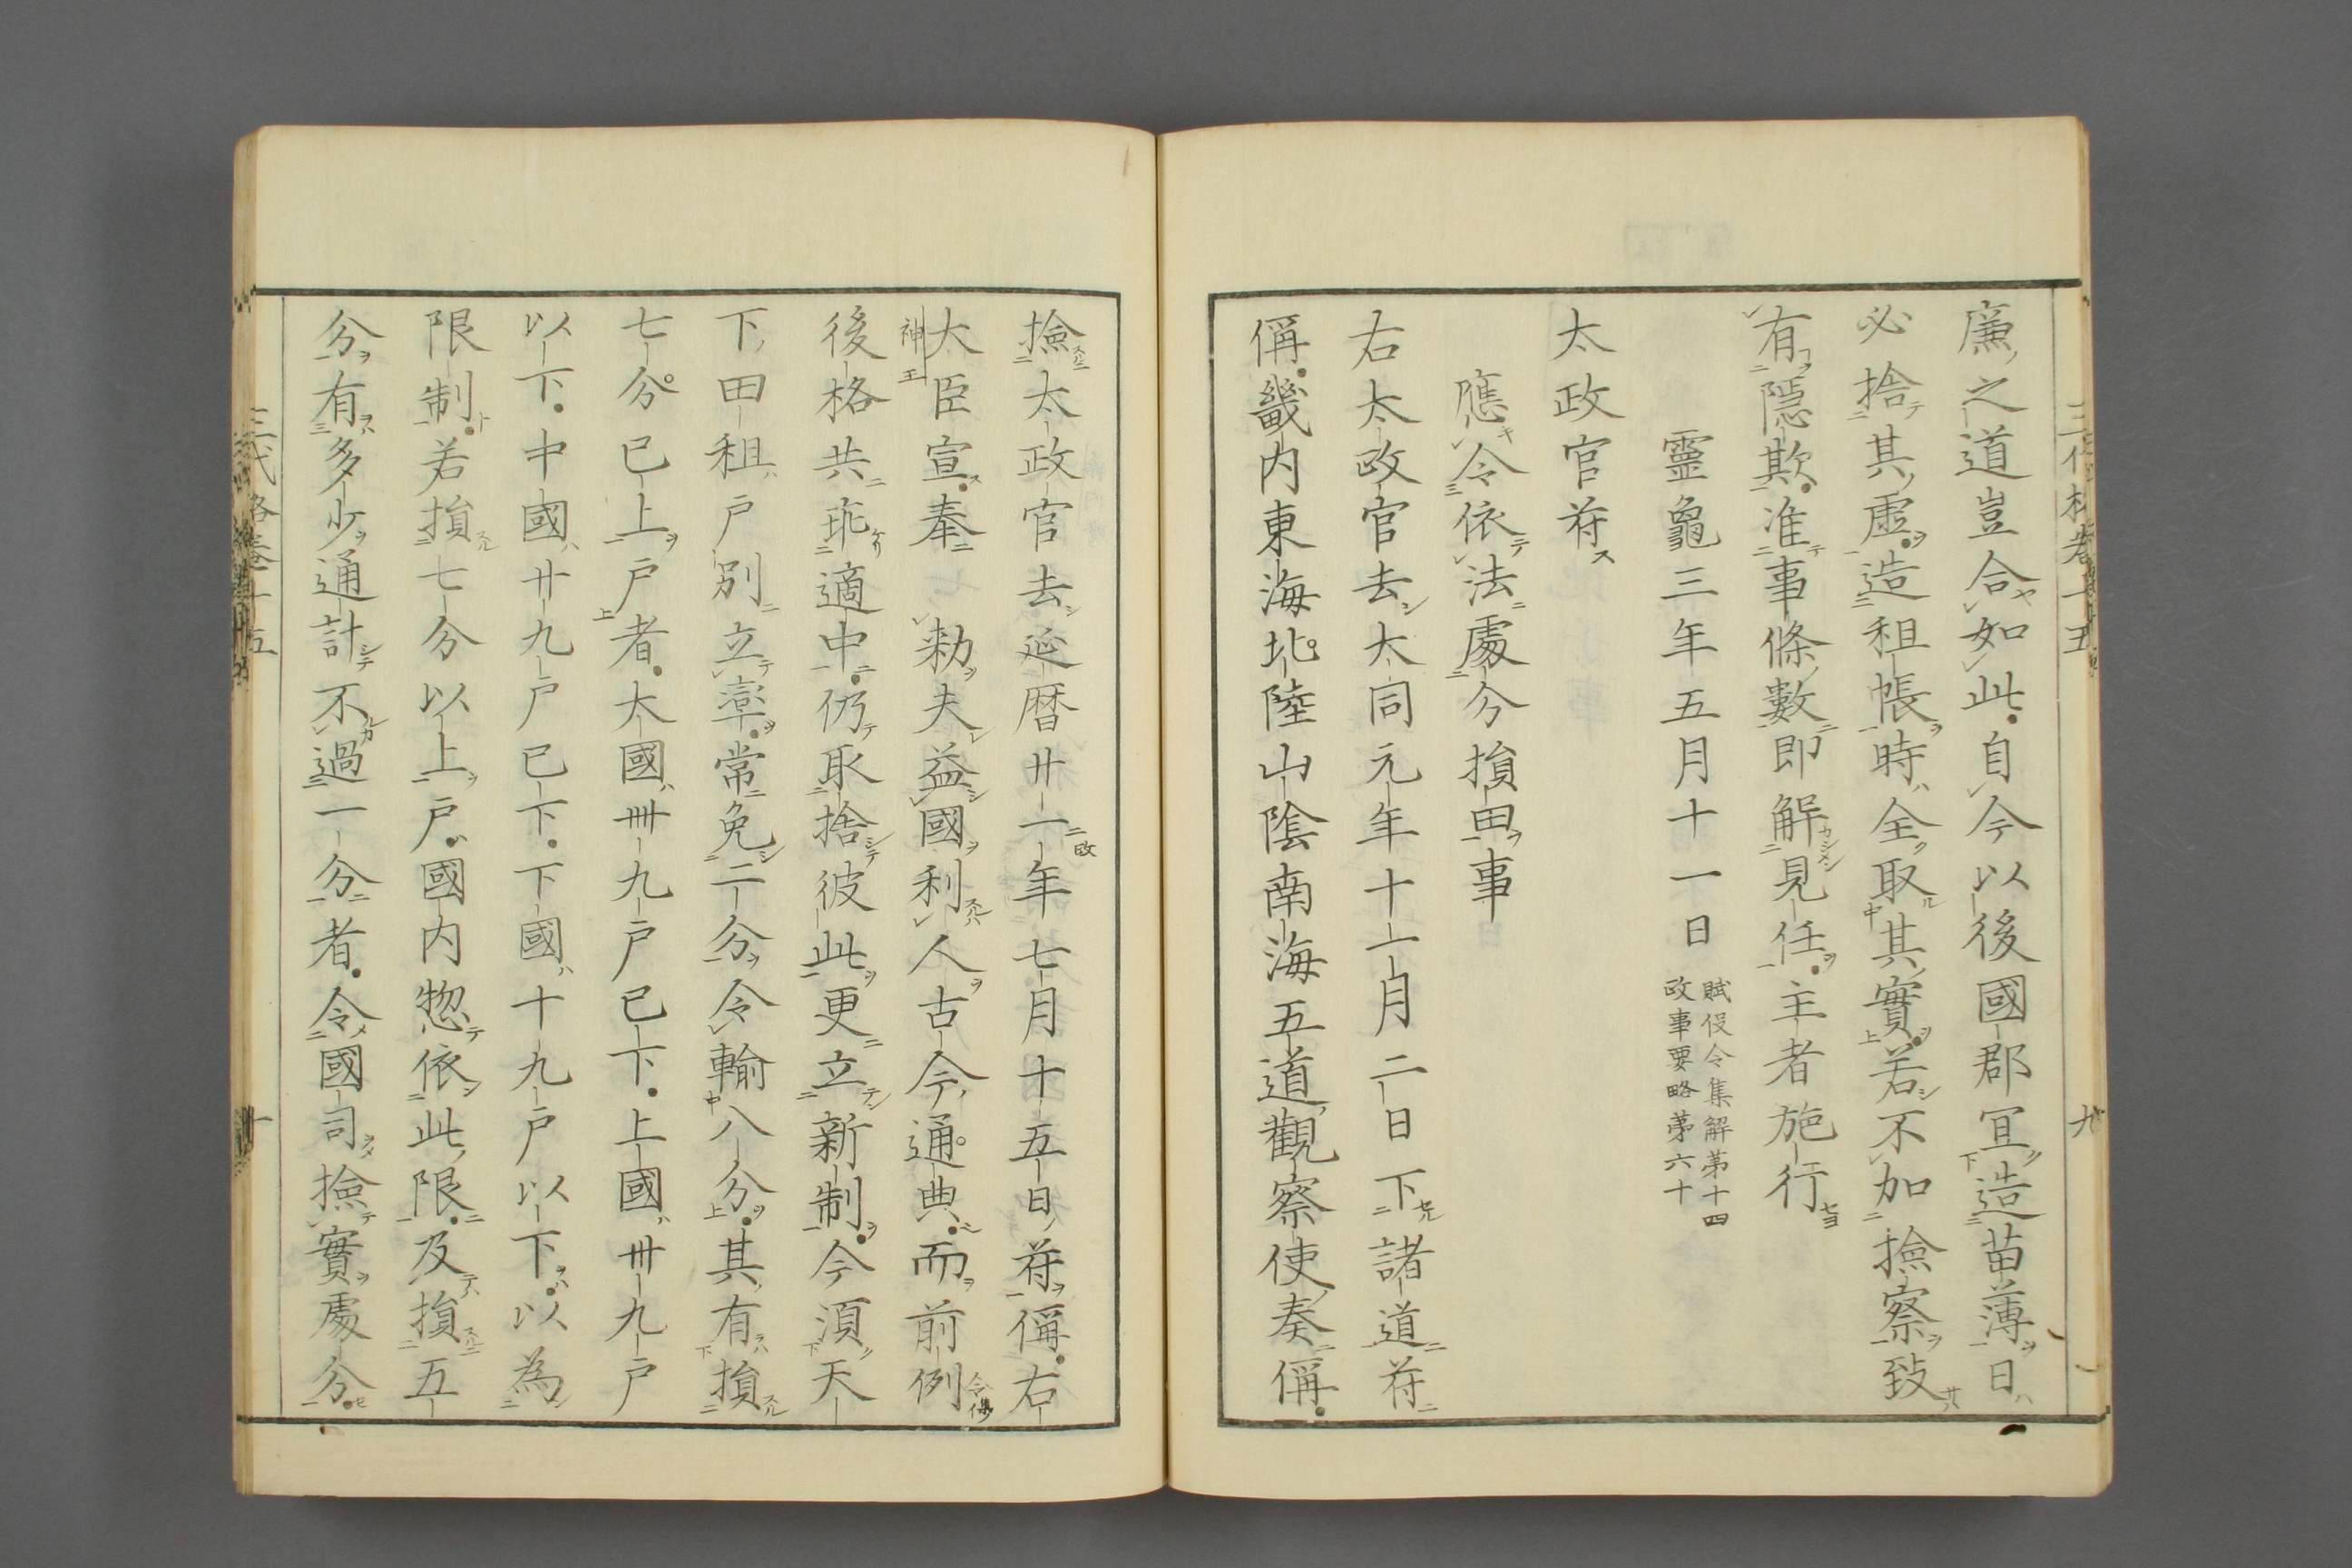 廉之道豈合如此自今以後國郡冝造苗薄日
必捨其虚造租帳時全取其實若不加撿察致
有隱欺准事條數即解見任主者施行
靈龜三年五月十一日
賦役令集解第十四
政事要略第六十
太政官符
應令依法處分損田事
右太政官去大同元年十一月二日下諸道符
偁畿内東海北陸山陰南海五道觀察使奏偁
撿太政官去延暦廿一年七月十五日符偁右
大臣宣奉 勅夫益國利人古今通典而前例
神王
後格共乖適中仍取捨彼此更立新制今須天
下田租戸別立率常免二分令輸八分其有損
七分已上戸者大國卌九戸已下上國卅九戸
以下中國廿九戸已下下國十九戸以下以為
限制若損七分以上戸國内惣依此限及損五
分有多少通計不過一分者令國司撿實處分